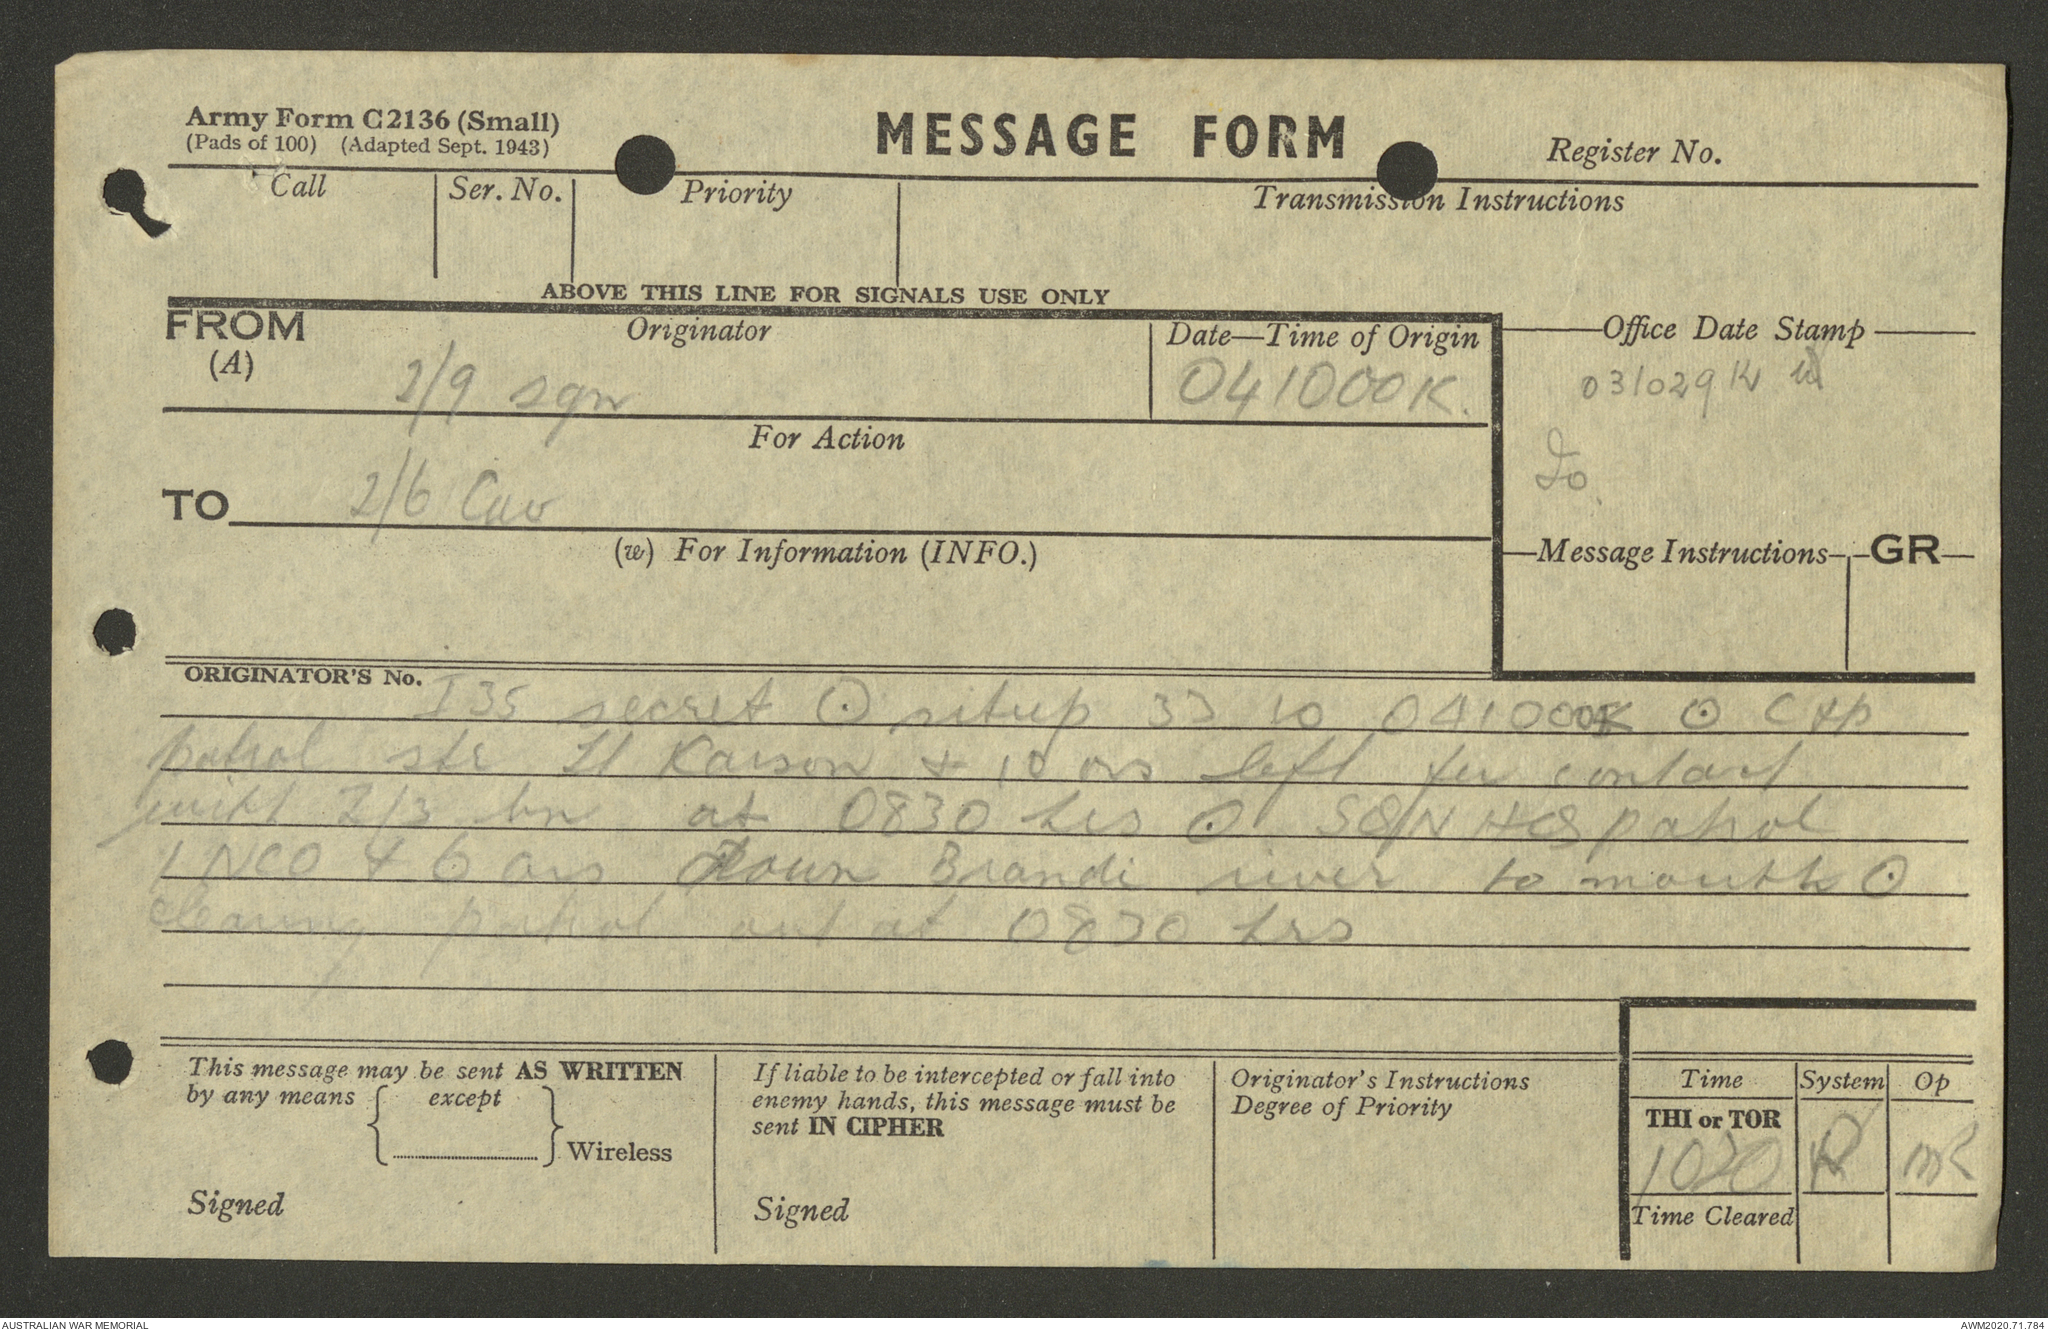 Army Form C2136 (Small)
(Pads of 100) (Adapted Sept. 1943)
MESSAGE FORM
Register No.
Call
Ser. No.
Priority
Transmission Instructions
ABOVE THIS LINE FOR SIGNALS USE ONLY
FROM
(A)
Originator
2/9 sqn
Date—Time of Origin
041000K.
Office Date Stamp
031029K
For Action
TO
2/6 Cav
Io
(w) For Information (INFO.)
Message Instructions
GR
ORIGINATOR'S No.
I 35 secret ⊙ sitrep 33 to 041000K ⊙ C tp
patrol str Lt Karson + 10 ors left for contact
with 2/3 bn at 0830 hrs ⊙ SQN HQ patrol
1 NCO + 6 ors down Brandi river to mouth ⊙
clearing patrol out at 0830 hrs
This message may be sent AS WRITTEN
by any means except
Wireless
Signed
If liable to be intercepted or fall into
enemy hands, this message must be
sent IN CIPHER
Signed
Originator's Instructions
Degree of Priority
Time
System
Op
THI or TOR
1020
R
MR
Time Cleared
AUSTRALIAN WAR MEMORIAL
AWM2020.71.784